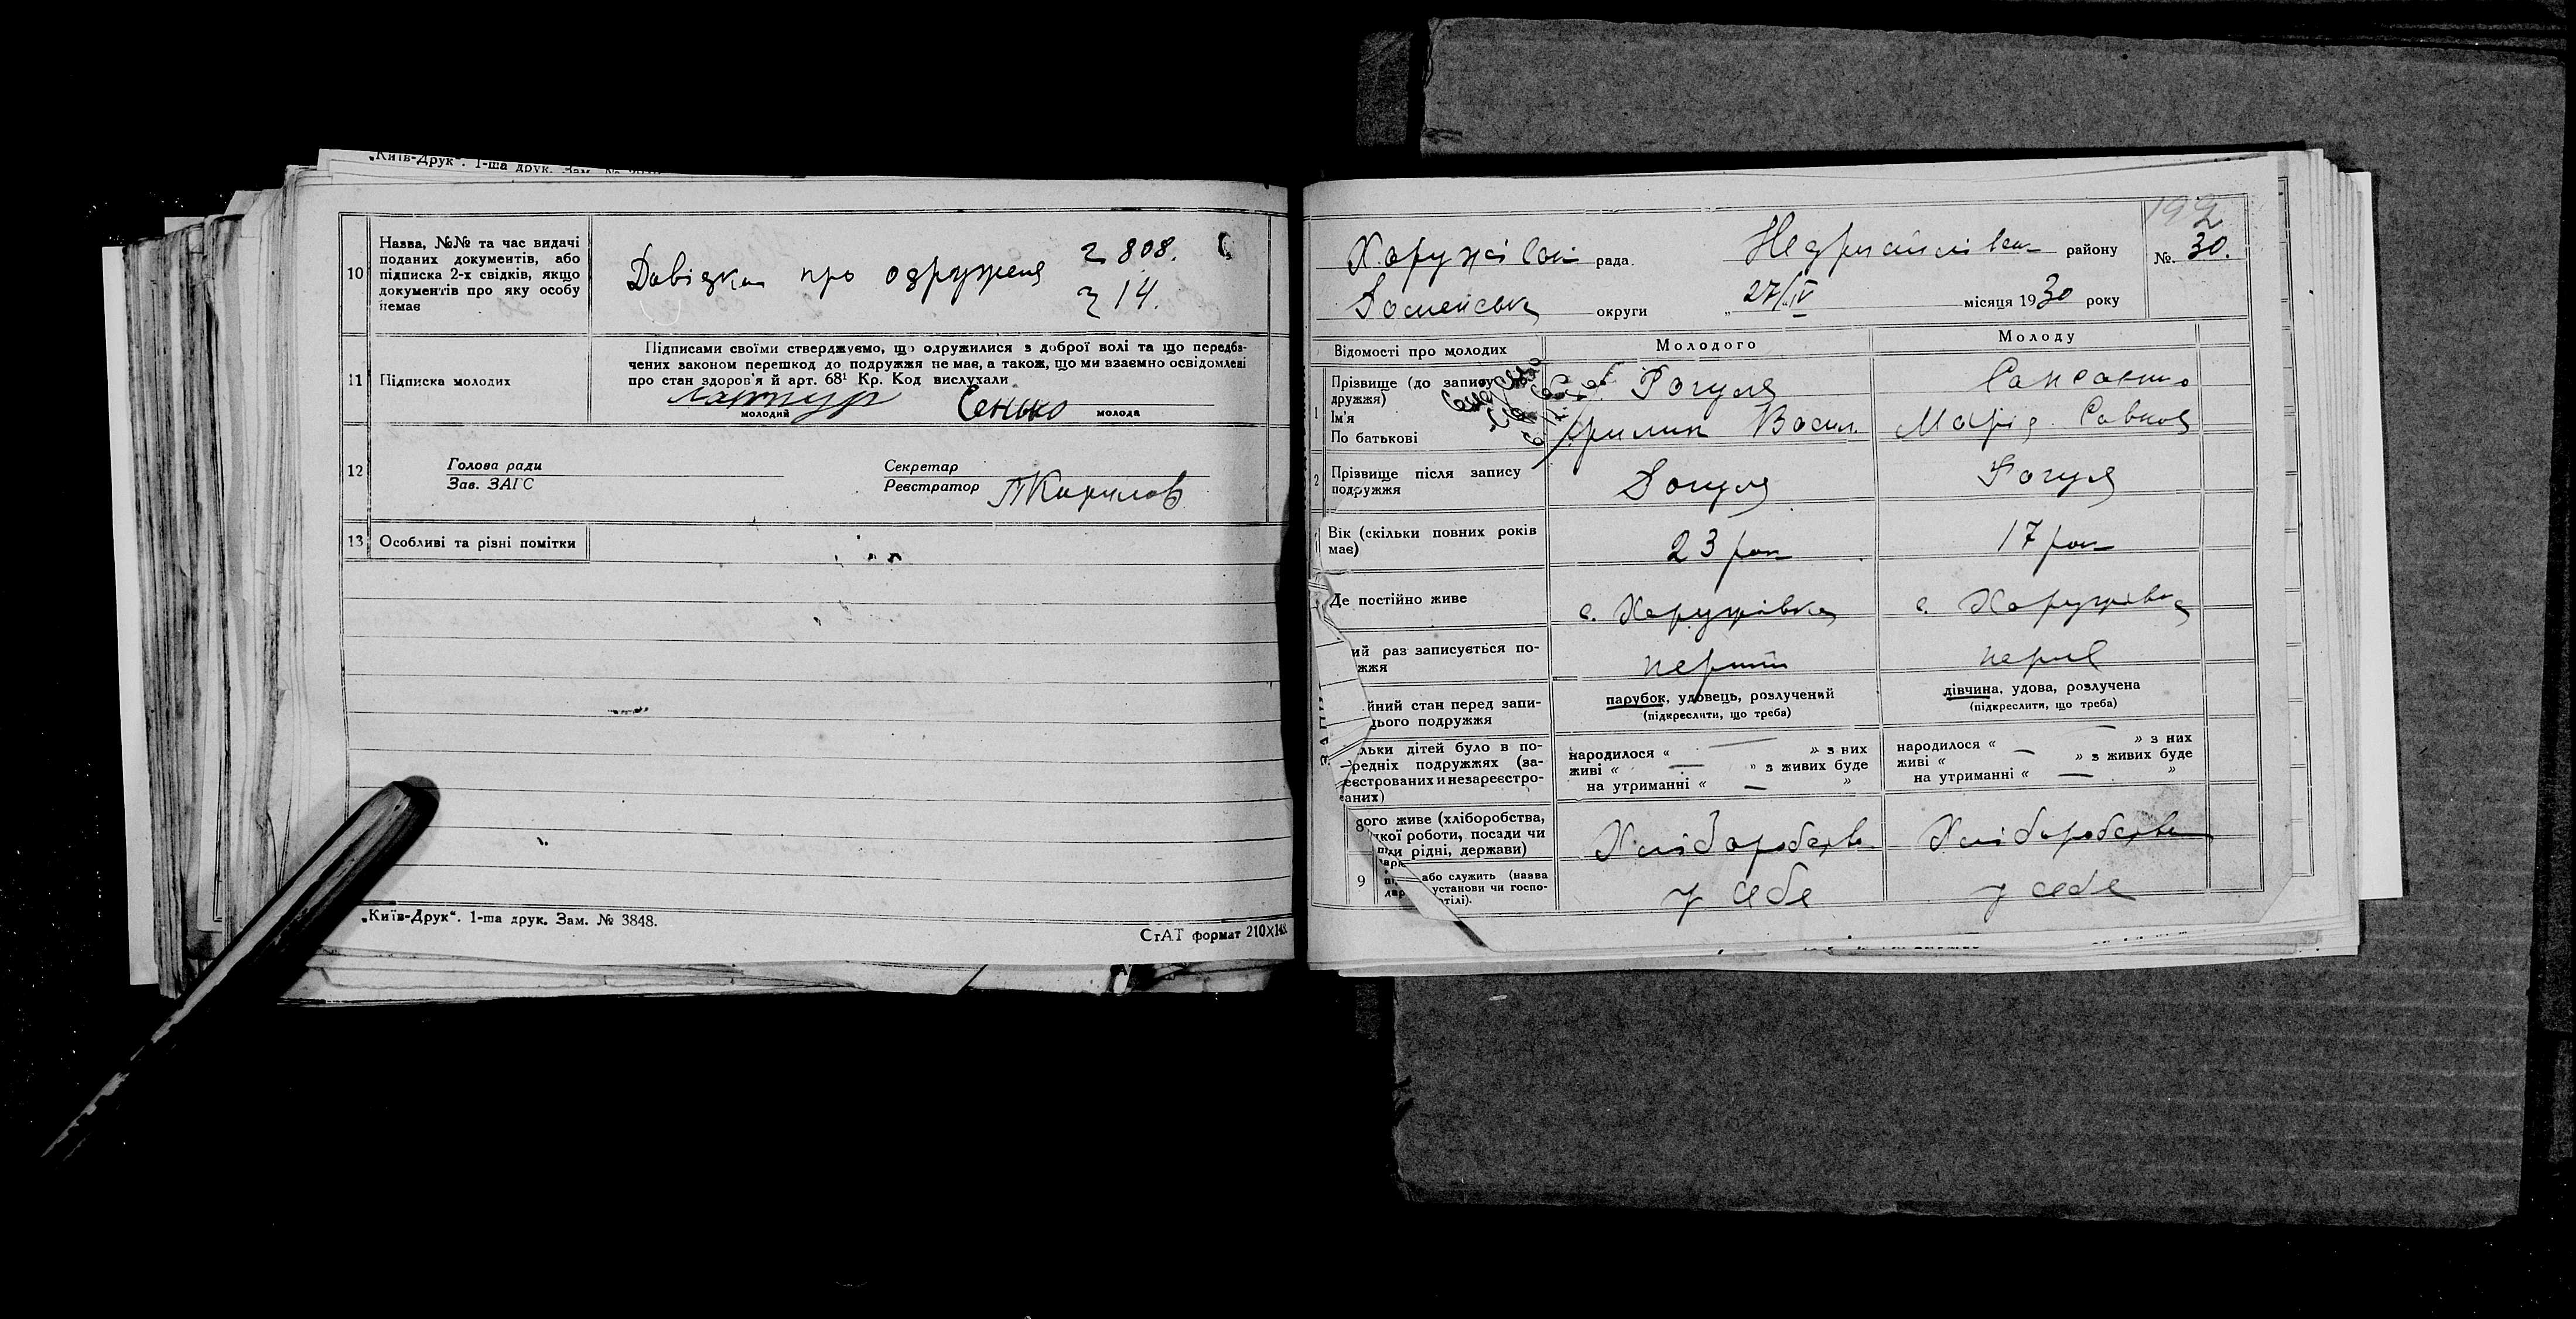 „Київ-Друк“. 1-ша друк. Зам. №
10
Назва, №№ та час видачі
поданих документів, або
підписка 2-х свідків, якщо
документів про яку особу
немає
Довідка про одруженя
808.
14.
11
Підписка молодих
Підписами своїми стверджуємо, що одружилися з доброї волі та що передба-
чених законом перешкод до подружжя не має, а також, що ми взаємно освідомлені
про стан здоров'я й арт. 68¹ Кр. Код вислухали
Сенько
молодий
молода
12
Голова ради
Зав. ЗАГС
Секретар
Реєстратор
Кирилов
13
Особливі та різні помітки
„Київ-Друк“. 1-ша друк. Зам. № 3848.
СтАТ формат 210х148
192
Хоружівск рада.
Недригайлівськ району
№. 30.
Роменськ округи
„ 27/IV місяця 1930 року
Відомості про молодих
Молодого
Молоду
1
Прізвище (до запису
дружжя)
Ім'я
По батькові
Рогуля
Василь
Марія Савков
2
Прізвище після запису
подружжя
Рогуля
Рогуля
Вік (скільки повних років
має)
23 рок
17 рок
Де постійно живе
с. Хоружівка
с. Хоружівка
ий раз записується по-
жжя
перший
перш
йний стан перед запи-
цього подружжя
парубок, удовець, розлучений
(підкреслити, що треба)
дівчина, удова, розлучена
(підкреслити, що треба)
льки дітей було в по-
редніх подружжях (за-
еєстрованих и незареєстро-
аних)
народилося “ — ” з них
живі “ — ” з живих буде
на утриманні “ — ”
народилося “ — ” з них
живі “ — ” з живих буде
на утриманні “ — ”
8
ого живе (хліборобства,
якої роботи, посади чи
рідні, держави)
Хліборобство
Хліборобства
9
або служить (назва
установи чи госпо-
тілі).
у себе
у себе
ЗАПИ